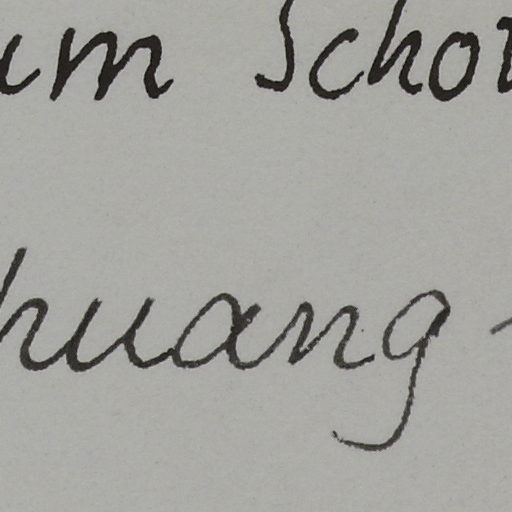 um Schot
huang -